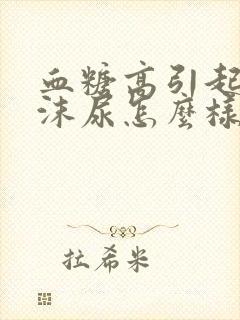 血糖高引起
沫尿怎麼樣
拉希米